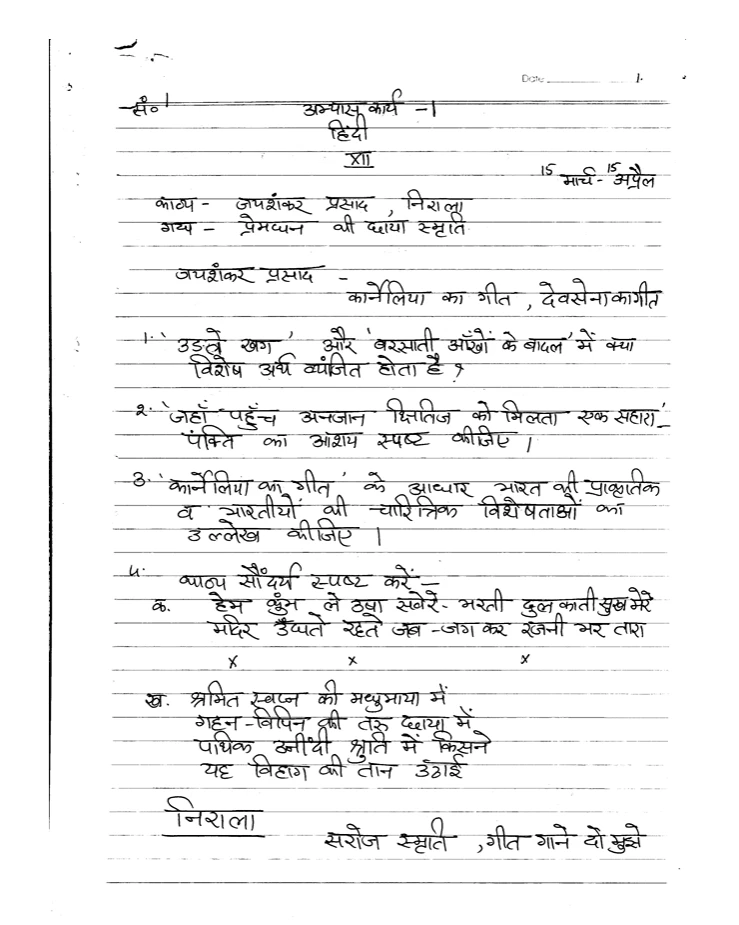 Date 1.
सं० 1 अभ्यास कार्य -1
हिंदी
XII
15 मार्च - 15 अप्रैल
काव्य - जयशंकर प्रसाद , निराला
गद्य - प्रेमघन की छाया स्मृति
जयशंकर प्रसाद -
कार्नेलिया का गीत , देवसेना का गीत
1. 'उड़ते खग' और 'बरसाती आँखों के बादल' में क्या
विशेष अर्थ व्यंजित होता है ?
२. 'जहाँ पहुँच अनजान क्षितिज को मिलता एक सहारा'_
पंक्ति का आशय स्पष्ट कीजिए ।
3. 'कार्नेलिया का गीत' के आधार भारत की प्राकृतिक
व भारतीयों की चारित्रिक विशेषताओं का
उल्लेख कीजिए ।
4. काव्य सौंदर्य स्पष्ट करें -
क. हेम कुंभ ले उषा सवेरे - भरती ढुलकाती सुख मेरे
मदिर ऊँघते रहते जब - जग कर रजनी भर तारा
x x x
ख. श्रमित स्वप्न की मधुमाया में
गहन - विपिन की तरु छाया में
पथिक उनींदी श्रुति में किसने
यह विहाग की तान उठाई
निराला
सरोज स्मृति , गीत गाने दो मुझे